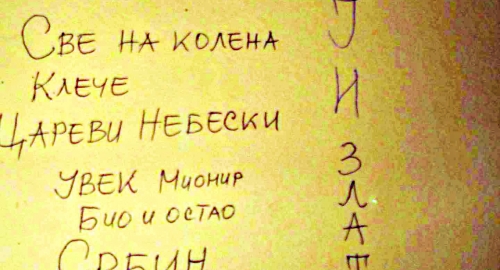 Све на колена
Клече
Цареви Небески
Увек Мионир
Био и остао
Србин
Ј
И
З
Л
А
Т